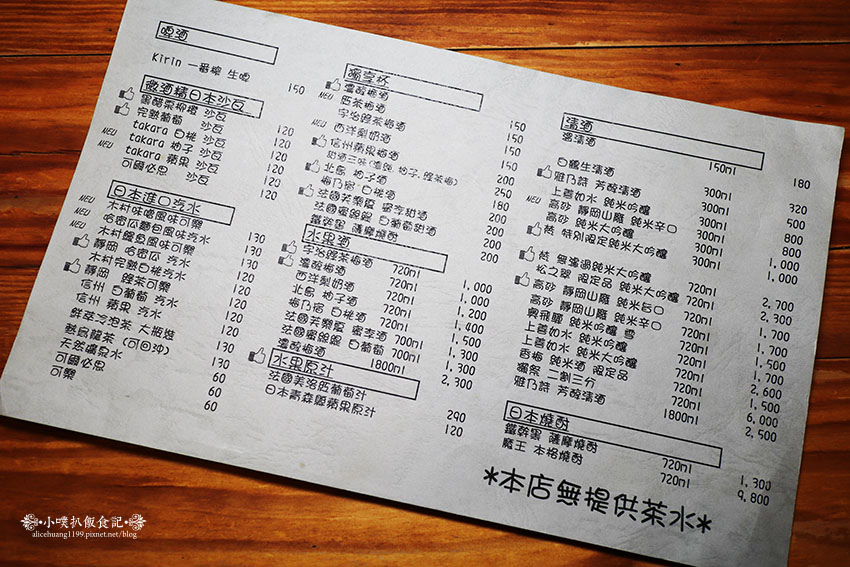 啤酒
Kirin 一番榨 生啤 150
微酒精日本沙瓦
黑醋栗柳橙 沙瓦 120
完熟葡萄 沙瓦 120
NEW takara 白桃 沙瓦 120
NEW takara 柚子 沙瓦 120
NEW takara 蘋果 沙瓦 120
可爾必思 沙瓦 120
日本進口汽水
NEW 木村味噌風味可樂 130
NEW 哈密瓜麵包風味汽水 130
NEW 木村鰻魚風味可樂 130
靜岡 哈密瓜 汽水 120
木村完熟白桃汽水 130
靜岡 綠茶可樂 120
信州 白葡萄 汽水 120
信州 蘋果 汽水 120
鮮萃冷泡茶 大瓶裝 120
熱烏龍茶 (可回沖) 130
天然礦泉水 60
可爾必思 60
可樂 60
獨享杯
溫醇梅酒 150
NEW 紅茶梅酒 150
宇治綠茶梅酒 150
NEW 西洋梨奶酒 200
信州蘋果梅酒
北島 柚子酒
梅乃宿 白桃酒
法國芙樂夏 蜜李甜酒
法國蜜鍶鍶 白葡萄甜酒
鐵幹黑 薩摩燒酎 200
水果酒
宇治綠茶梅酒 720ml 1,000
溫醇梅酒 720ml 1,000
西洋梨奶酒 720ml 1,200
北島 柚子酒 720ml 1,400
梅乃宿 白桃酒 720ml 1,500
法國芙樂夏 蜜李酒 700ml 1,300
法國蜜鍶鍶 白葡萄 700ml 1,300
溫醇梅酒 1800ml 2,300
水果原汁
法國美洛紅葡萄汁 290
日本青森縣蘋果原汁 120
清酒
溫清酒 150ml 180
白鶴生清酒 300ml 320
雅乃詩 芳醇清酒 300ml 500
NEW 上善如水 純米吟釀 300ml 800
高砂 靜岡山廢 純米辛口 300ml 800
高砂 純米大吟釀 300ml 1,000
梵 特別限定純米大吟釀 300ml 1,000
梵 無濾過純米大吟釀 720ml 2,700
松之翠 限定品 純米大吟釀 720ml 2,300
高砂 靜岡山廢 純米旨口 720ml 1,700
高砂 靜岡山廢 純米辛口 720ml 1,700
奧飛驒 純米吟釀 雪 720ml 1,500
上善如水 純米大吟釀 720ml 1,700
上善如水 純米吟釀 720ml 2,600
香梅 純米酒 限定品 720ml 1,500
獺祭 二割三分 720ml 6,000
雅乃詩 芳醇清酒 1800ml 2,500
日本燒酎
鐵幹黑 薩摩燒酎 720ml 1,300
魔王 本格燒酎 720ml 9,800
*本店無提供茶水*
•小噗扒飯食記•
alicehuang1199.pixnet.net/blog